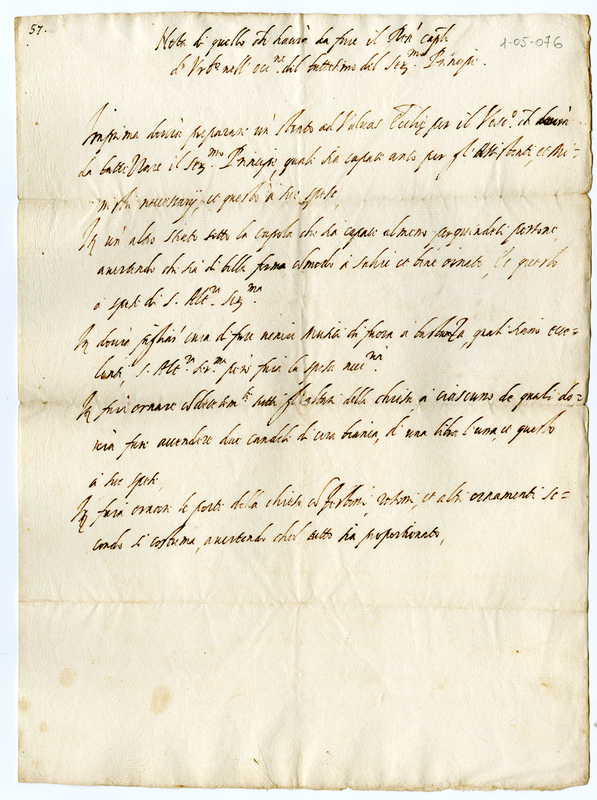 57.
1-05-076
Nota di quello ch haverà da fare il Rev.' Cap.lo
d'Urb.o nell'occ.ne del battesimo del Ser.mo Principe.
Imprima dovrà preparare un' strato ad Valvas Ecclie per il Vesc.o ch dovrà
da battizzare il Ser.mo Principe, quali sia capace anco per gl'Assistenti, et Mi=
nistri necessarij, et questo à sue spese,
It un' altro strato sotto la cupola che sia capace almeno per quindeci persone,
avertendo che sia di bella forma comodo à salire et bene ornato, Et questo
à spese di S. Alt.za Ser.ma
It dovrà pigliar' cura di fare venire Musici di fuora à bastanza, quali siano ecce=
lenti, S. Alt.za Ser.ma però farà la spesa nec.ria
It farà ornare tutti gl'altari della chiesa à ciascuno de quali do=
verà fare accendere due candele di cera bianca, di una libra l'una, et questo
à sue spese,
It farà ornare le porte della chiesa con festoni, et altri ornamenti se=
condo si costuma, avertendo chel tutto sia proportionato,